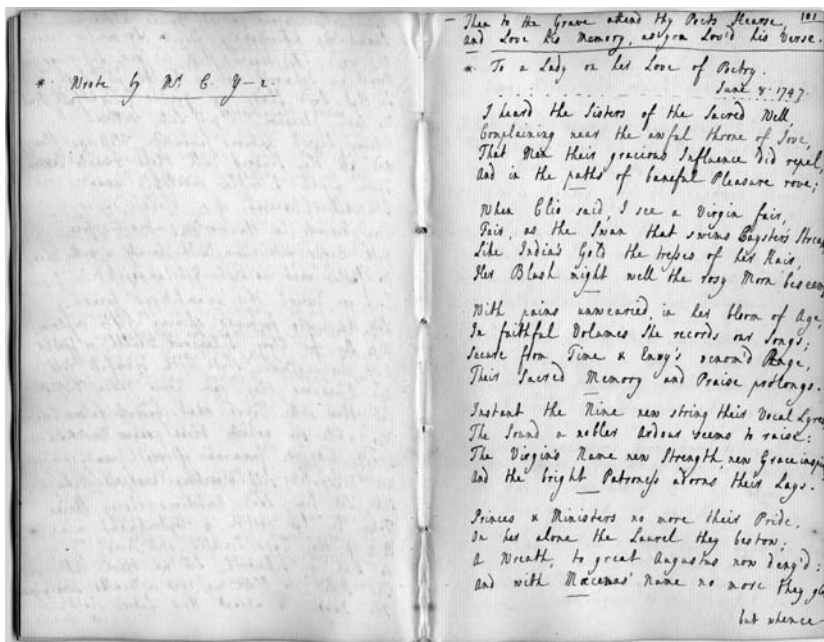 * Wrote by Mr. C. Y-e.
101
Then to the Grave attend thy Poets Hearse,
and Love his Memory, as you Lov'd his Verse.
* To a Lady on her Love of Poetry.
June 8. 1747.
I heard the Sisters of the Sacred Well,
Complaining near the awful throne of Jove,
That Men their gracious Influence did repel,
And in the paths of baneful Pleasure rove;
When Clio said, I see a Virgin fair,
Fair, as the Swan that swims Cayster's Stream
Like India's Gold the tresses of her Hair,
Her Blush might well the rosy Morn beseem
With pains unwearied, in her bloom of Age,
In faithful Volumes She records our Songs;
Secure from Time & Envy's venom'd Rage,
Their Sacred Memory and Praise prolongs.
Instant the Nine new string their Vocal Lyres
The Sound a nobler Ardour seems to raise:
The Virgin's Name new Strength, new Grace inspi
And the bright Patroness adorns their Lays.
Princes & Ministers no more their Pride,
On her alone the Laurel they bestow;
A Wreath, to great Augustus now deny'd:
And with Mæcenas' Name no more they
but whence